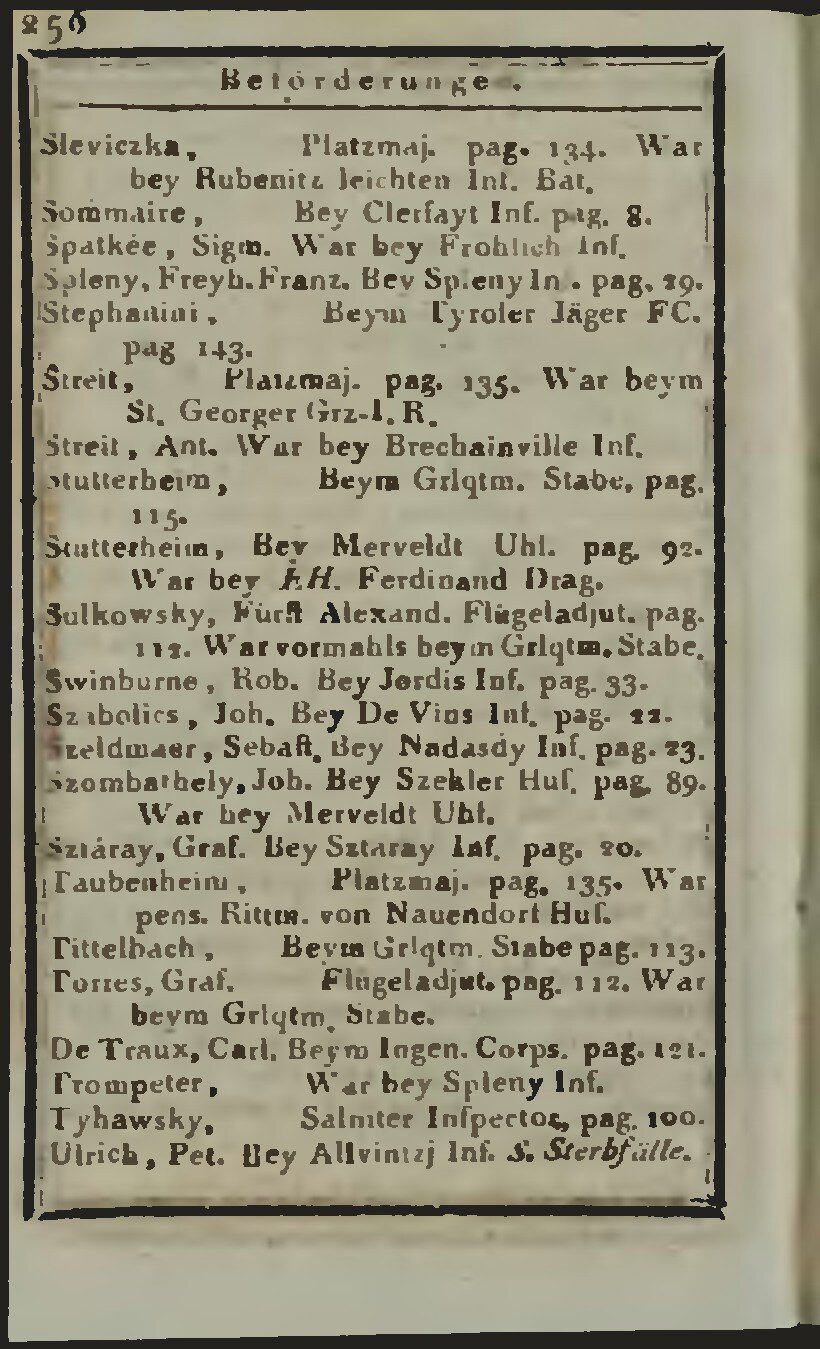 256
Beförderungen.
Sleviczka, Platzmaj. pag. 134. War
bey Rubenitz leichten Inf. Bat.
Sommaire, Bey Clerfayt Inf. pag. 8.
Spatkée, Sigm. War bey Frohlich Inf.
Spleny, Freyh. Franz. Bey Spleny Inf. pag. 29.
Stephanini, Beym Tyroler Jäger FC.
pag 143.
Streit, Platzmaj. pag. 135. War beym
St. Georger Grz-I. R.
Streit, Ant. War bey Brechainville Inf.
Stutterheim, Beym Grlqtm. Stabe, pag.
115.
Stutterheim, Bey Merveldt Uhl. pag. 92.
War bey EH. Ferdinand Drag.
Sulkowsky, Fürſt Alexand. Flügeladjut. pag.
112. War vormahls beym Grlqtm. Stabe.
Swinburne, Rob. Bey Jordis Inf. pag. 33.
Szabolics, Joh. Bey De Vins Inf. pag. 22.
Szeldmaer, Sebaſt. Bey Nadasdy Inf. pag. 23.
Szombathely, Joh. Bey Szekler Huſ. pag. 89.
War bey Merveldt Uhl.
Sztáray, Graf. Bey Sztaray Inf. pag. 20.
Taubenheim, Platzmaj. pag. 135. War
pens. Rittm. von Nauendorf Huſ.
Tittelbach, Beym Grlqtm. Stabe pag. 113.
Torres, Graf. Flügeladjut. pag. 112. War
beym Grlqtm. Stabe.
De Traux, Carl. Beym Ingen. Corps. pag. 121.
Trompeter, War bey Spleny Inf.
Tyhawsky, Salniter Inſpector, pag. 100.
Ulrich, Pet. Bey Allvintzj Inf. S. Sterbfälle.